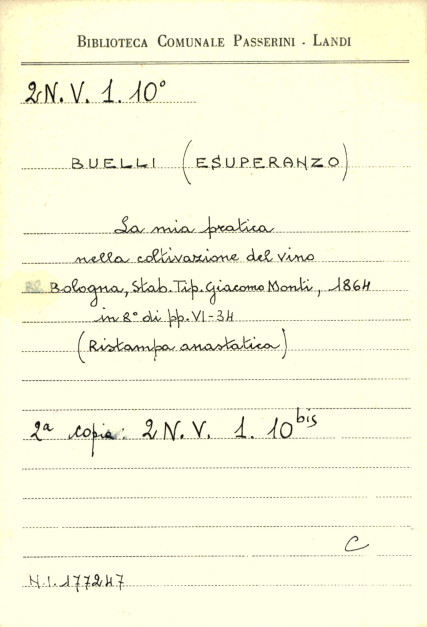 BIBLIOTECA COMUNALE PASSERINI - LANDI
2 N. V. 1. 10°
BUELLI (ESUPERANZO)
La mia pratica
nella coltivazione del vino
Bologna, Stab. Tip. Giacomo Monti, 1864
in 8° di pp. VI-34
(Ristampa anastatica)
2ª copia: 2 N. V. 1. 10 bis
C
N.I. 177247